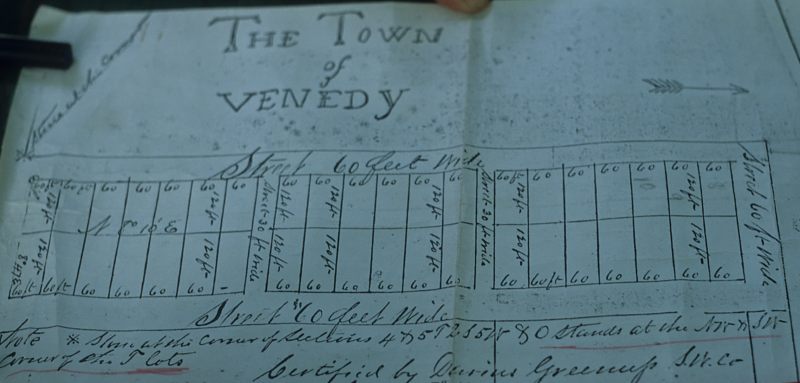 THE TOWN
of
VENEDY
Stone at the Corner
Street 60 feet Wide
60 60 60 60 60 60
120 ft 120 ft
Street 30 ft Wide
60 60 60 60 60 60
120 ft 120 ft
Street 30 ft Wide
60 ft 60 60 60 60 60 60
120 ft 120 ft
Street 60 ft Wide
120 ft 120 ft 120 ft 120 ft 120 ft 120 ft 120 ft
60 ft 60 ft 60 60 60 60
60 60 60 60 60 60
60 60 ft 60 60 60 60 60
Street 60 feet Wide
Note * Stone at the Corner of Sections 4 & 5 T 2 S 5 W & O Stands at the NW
Corner of the T Lots
Certified by Darius Greenup S.W. Co